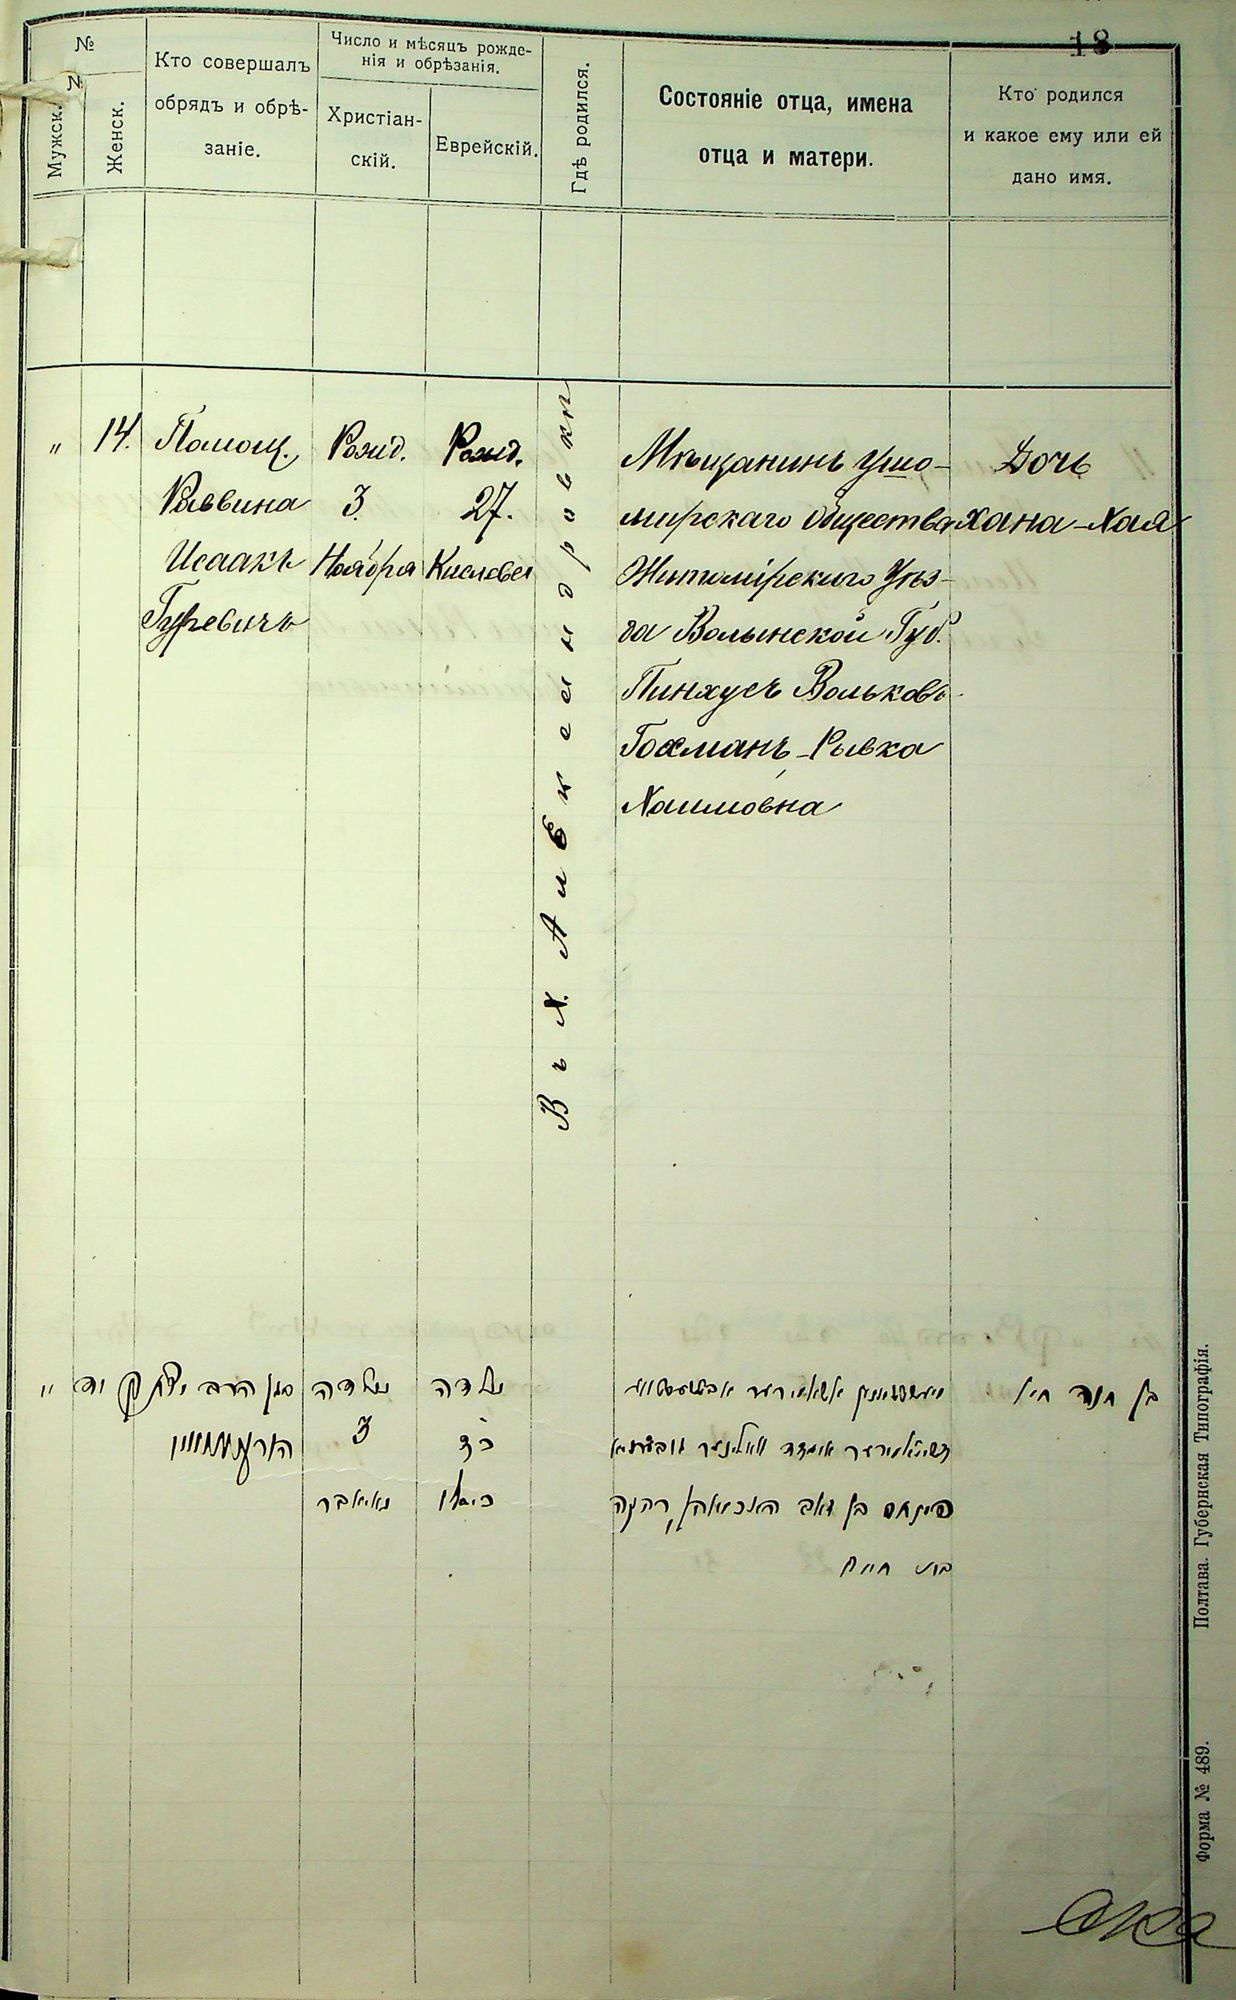 18
№
№
Мужск.
Женск.
Кто совершалъ
обрядъ и обрѣ-
заніе.
Число и мѣсяцъ рожде-
нія и обрѣзанія.
Христіан-
скій.
Еврейскій.
Гдѣ родился.
Состояніе отца, имена
отца и матери.
Кто родился
и какое ему или ей
дано имя.
" 14.
Помощ.
Раввина
Исаакъ
Гуревичъ
Рожд.
3.
Ноября
Рожд.
27.
Кислева
Въ х. Александровки
Мѣщанинъ Ушо-
мирскаго Общества
Житомірскаго Уѣз-
да Волынской Губ.
Пинхусъ Вольковъ
Гохманъ - Рывка
Хаимовна
Дочь
Хана-Хая
הרב יצחק
נולדה
3
נאיאבר
נולדה
כסלו
פינחס בן זאב
חיים
חנה חי'
Полтава. Губернская Типографія.
Форма № 489.